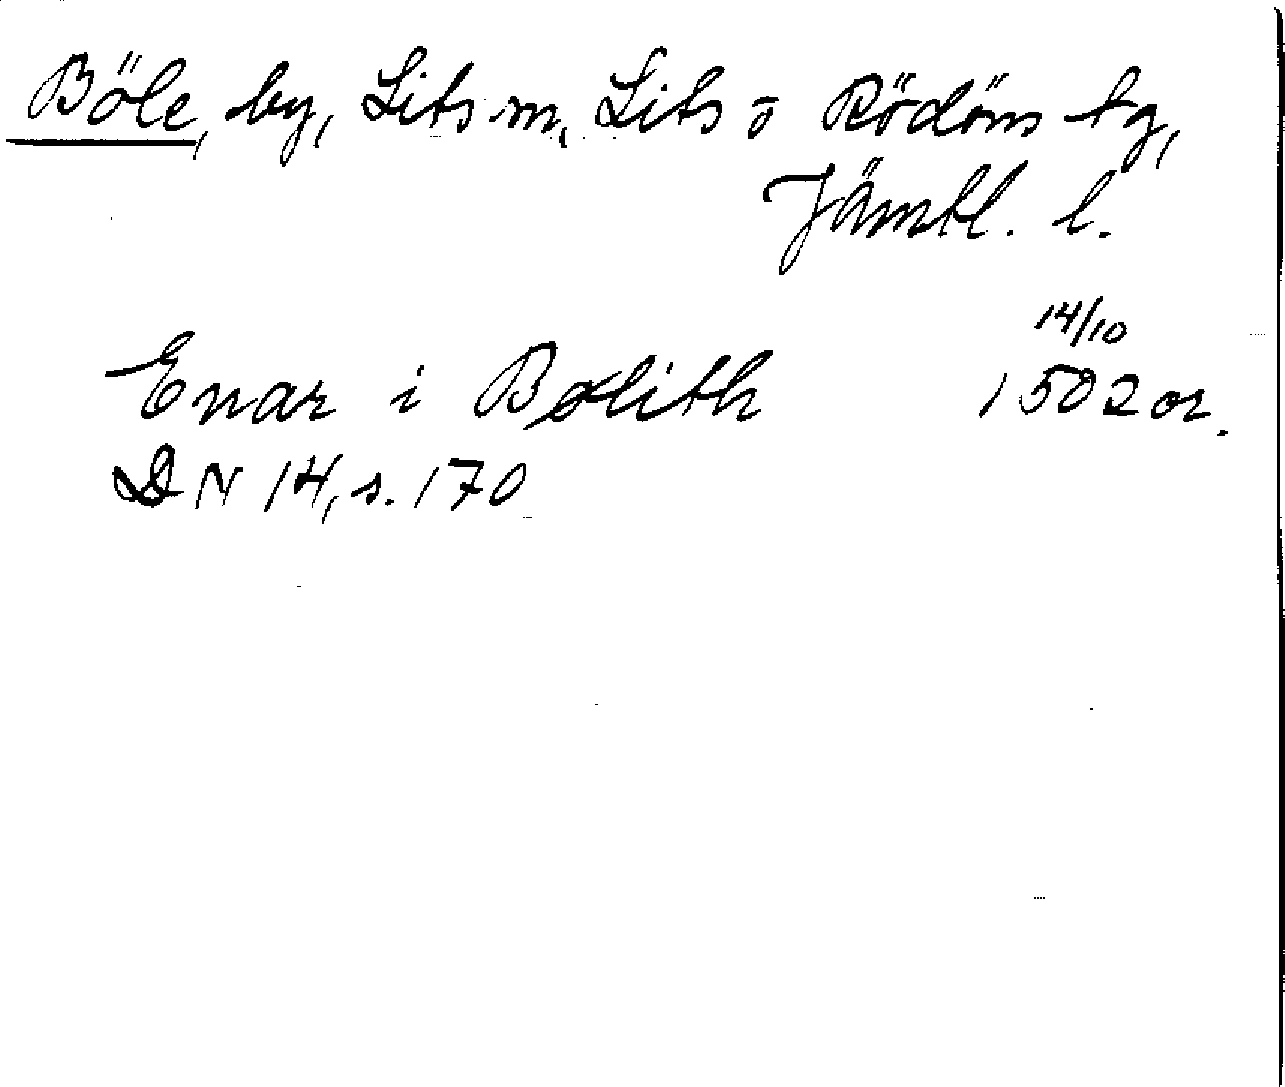 Böle, by, Lits sn, Lits o Rödöns tg,
Jämtl. l.
14/10
Enar i Bølith 1502 or.
DN 14, s. 170